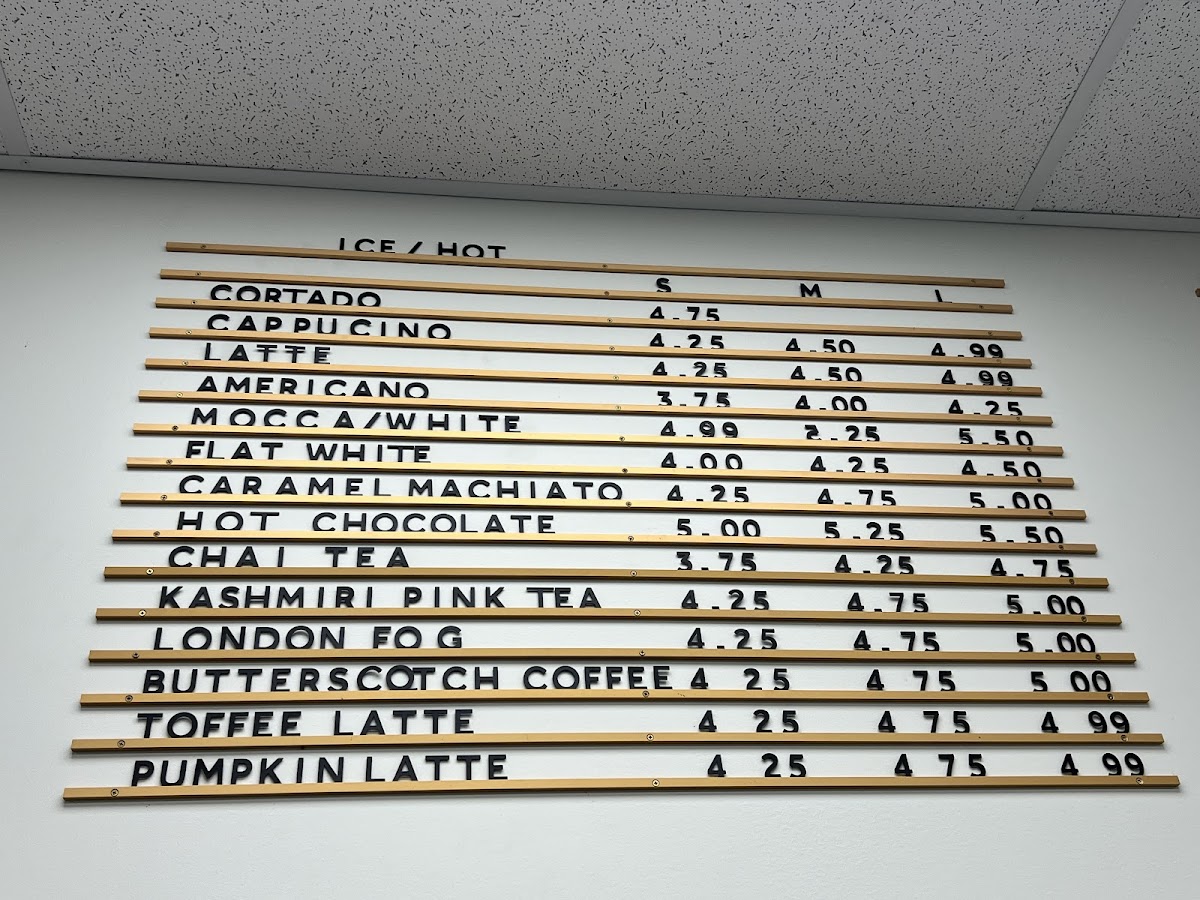 ICE/HOT
S M L
CORTADO 4.75
CAPPUCINO 4.25 4.50 4.99
LATTE 4.25 4.50 4.99
AMERICANO 3.75 4.00 4.25
MOCCA/WHITE 4.99 2.25 5.50
FLAT WHITE 4.00 4.25 4.50
CARAMEL MACHIATO 4.25 4.75 5.00
HOT CHOCOLATE 5.00 5.25 5.50
CHAI TEA 3.75 4.25 4.75
KASHMIRI PINK TEA 4.25 4.75 5.00
LONDON FOG 4.25 4.75 5.00
BUTTERSCOTCH COFFEE 4 25 4 75 5 00
TOFFEE LATTE 4 25 4 75 4 99
PUMPKIN LATTE 4 25 4 75 4 99